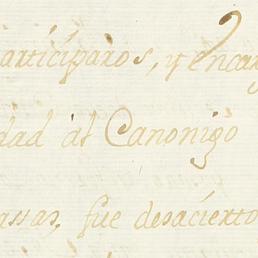 articiparos, y encar
dad al Canonigo
assas, fue desacierto